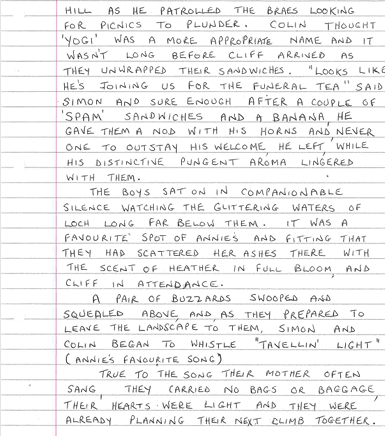 HILL AS HE PATROLLED THE BRAES LOOKING
FOR PICNICS TO PLUNDER. COLIN THOUGHT
'YOGI' WAS A MORE APPROPRIATE NAME AND IT
WASN'T LONG BEFORE CLIFF ARRIVED AS
THEY UNWRAPPED THEIR SANDWICHES. "LOOKS LIKE
HE'S JOINING US FOR THE FUNERAL TEA" SAID
SIMON AND SURE ENOUGH AFTER A COUPLE OF
'SPAM' SANDWICHES AND A BANANA, HE
GAVE THEM A NOD WITH HIS HORNS AND, NEVER
ONE TO OUTSTAY HIS WELCOME, HE LEFT, WHILE
HIS DISTINCTIVE PUNGENT AROMA LINGERED
WITH THEM.
THE BOYS SAT ON IN COMPANIONABLE
SILENCE WATCHING THE GLITTERING WATERS OF
LOCH LONG FAR BELOW THEM. IT WAS A
FAVOURITE SPOT OF ANNIE'S AND FITTING THAT
THEY HAD SCATTERED HER ASHES THERE WITH
THE SCENT OF HEATHER IN FULL BLOOM, AND
CLIFF IN ATTENDANCE.
A PAIR OF BUZZARDS SWOOPED AND
SQUEALED ABOVE, AND, AS THEY PREPARED TO
LEAVE THE LANDSCAPE TO THEM, SIMON AND
COLIN BEGAN TO WHISTLE "TAVELLIN' LIGHT"
(ANNIE'S FAVOURITE SONG)
TRUE TO THE SONG THEIR MOTHER OFTEN
SANG THEY CARRIED NO BAGS OR BAGGAGE,
THEIR HEARTS WERE LIGHT AND THEY WERE
ALREADY PLANNING THEIR NEXT CLIMB TOGETHER.